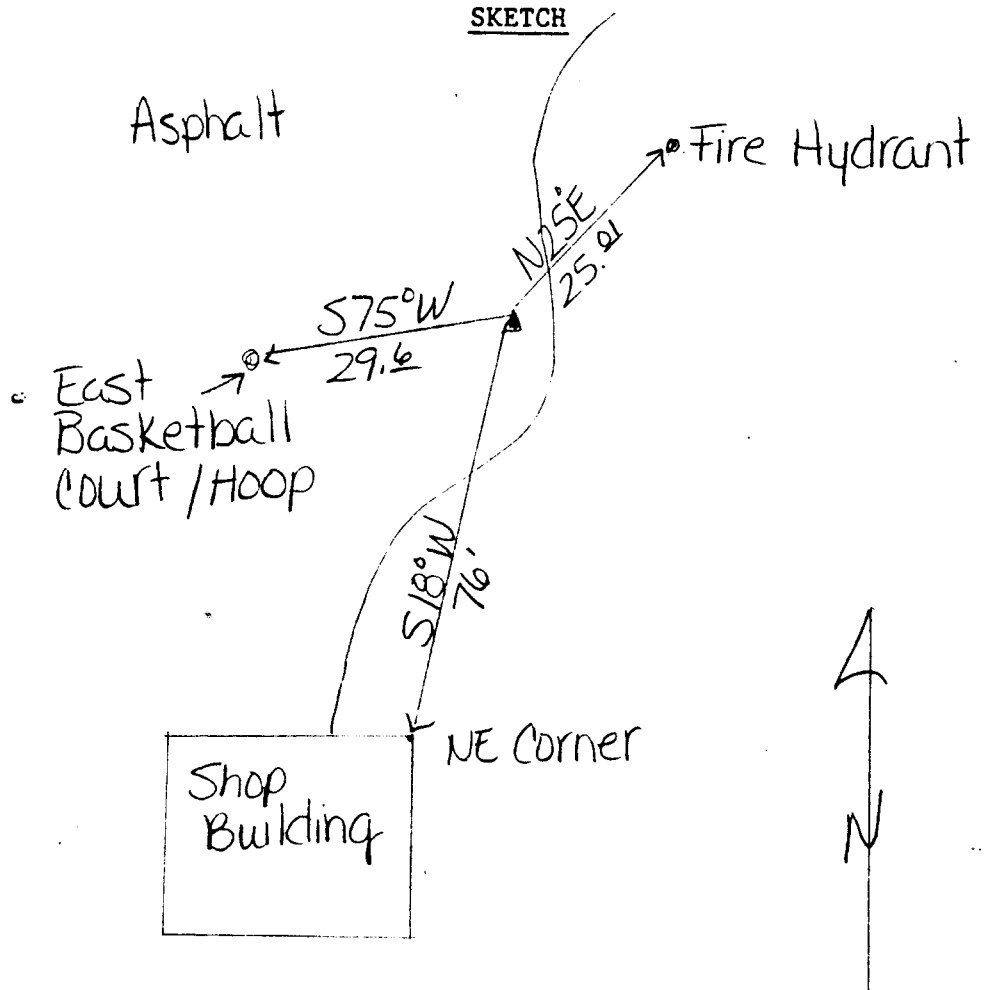 SKETCH
Asphalt
Fire Hydrant
N25°E
25.01
S75°W
29.6
East
Basketball
Court / Hoop
S18°W
76'
NE Corner
Shop
Building
N